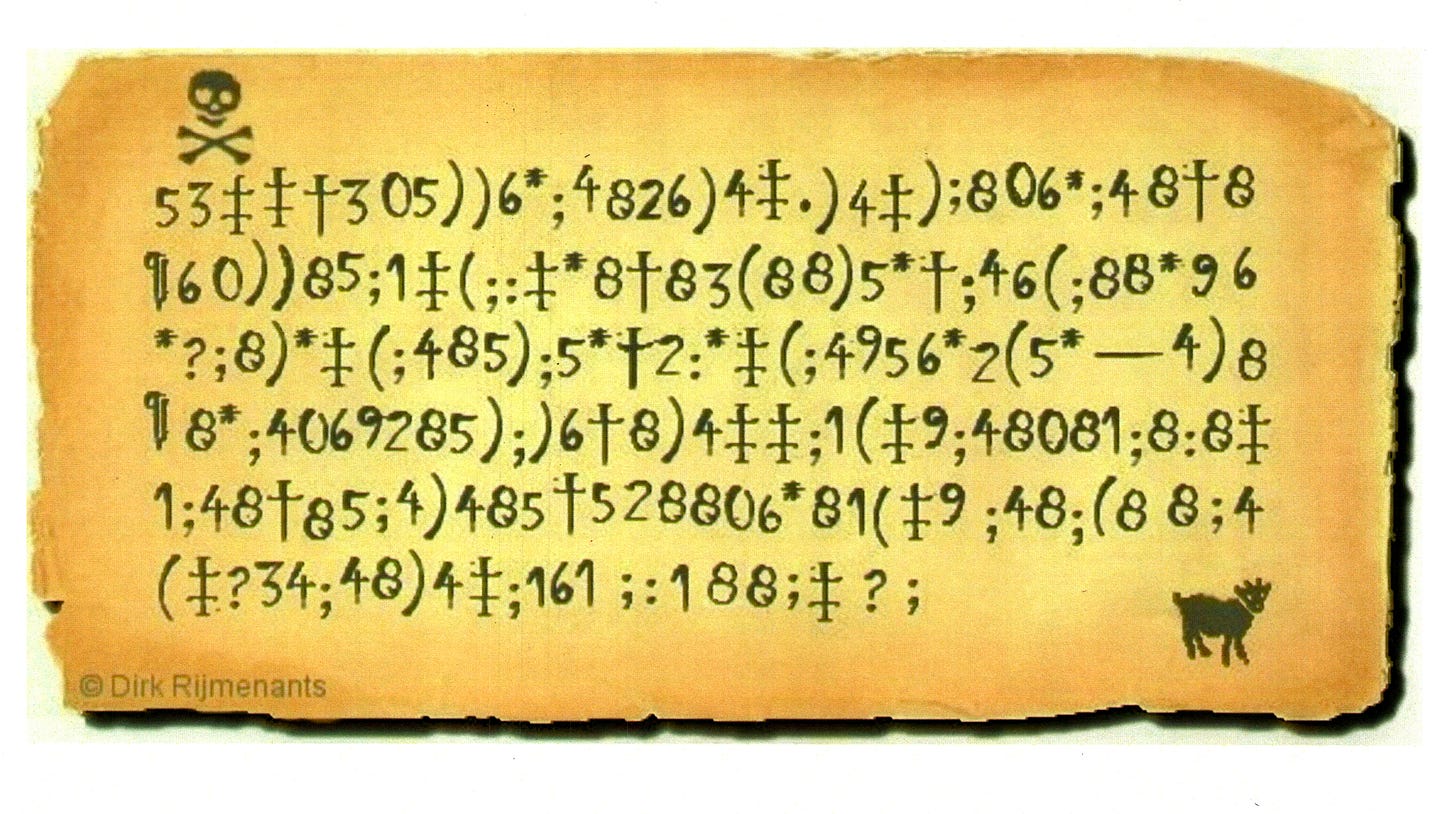 53‡‡†305))6*;4826)4‡.)4‡);806*;48†8
¶60))85;1‡(;:‡*8†83(88)5*†;46(;88*96
*?;8)*‡(;485);5*†2:*‡(;4956*2(5*—4)8
¶8*;4069285);)6†8)4‡‡;1(‡9;48081;8:8‡
1;48†85;4)485†528806*81(‡9;48;(88;4
(‡?34;48)4‡;161;:188;‡?;
© Dirk Rijmenants